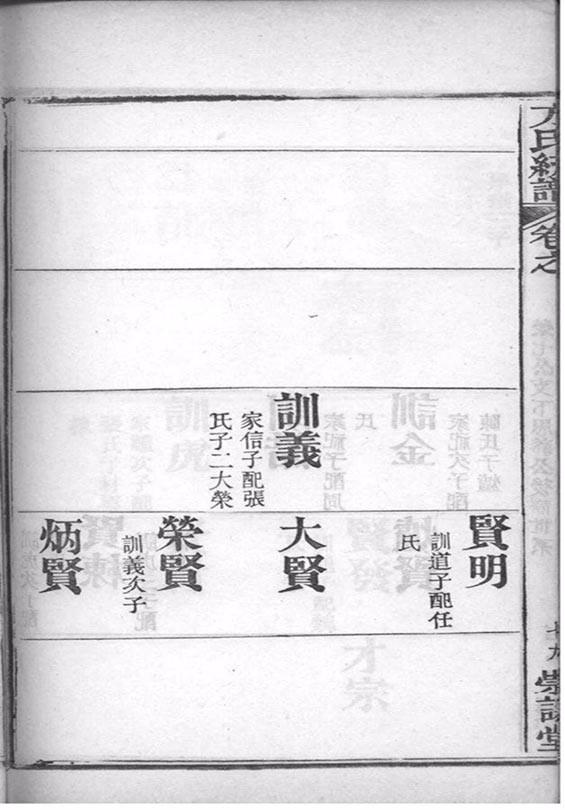 方氏統譜
卷之
訓義
家信子配張
氏子二大榮
賢明
訓道子配任
氏
大賢
榮賢
訓義次子
炳賢